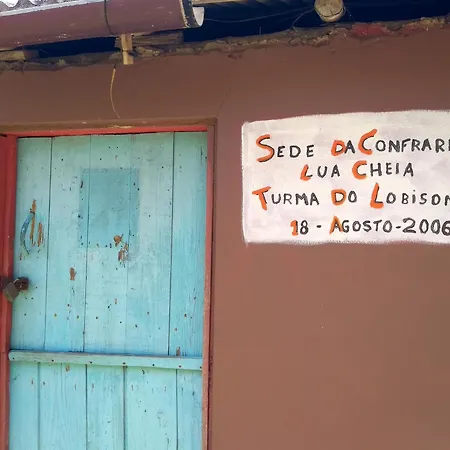 SEDE DA CONFRARI
LUA CHEIA
TURMA DO LOBISOM
18-AGOSTO-2006